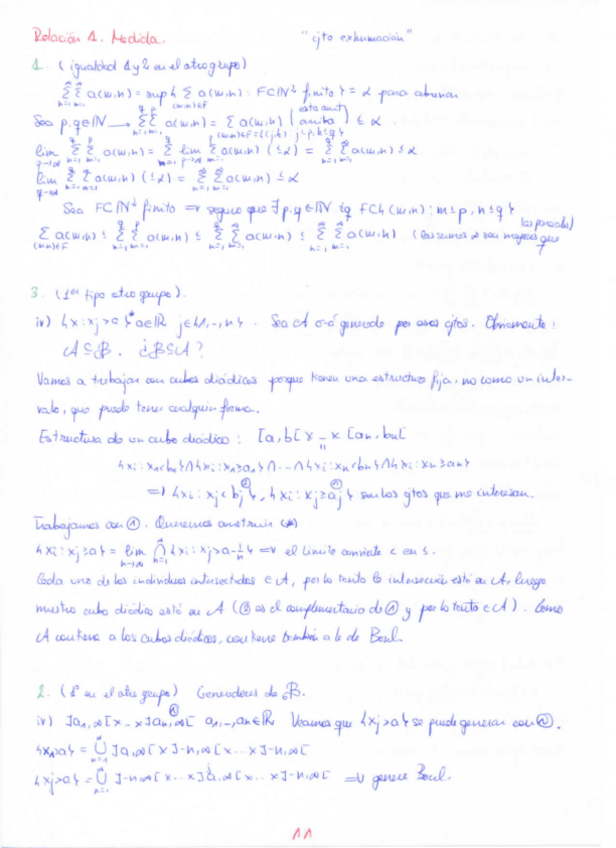 Relación 1. Medida. "cjto exhumación"
1. (igualdad 1 y 2 en el otro grupo)
∑_{n=1}^∞ ∑_{m=1}^∞ a(m,n) = sup{ ∑_{(m,n)∈F} a(m,n) : F⊂ℕ² finito } = α para abreviar
Sea p,q∈ℕ → ∑_{n=1}^q ∑_{m=1}^p a(m,n) = ∑_{(m,n)∈F={(j,k): j≤p,k≤q}} a(m,n) (está aquí arriba) ≤ α
lim_{p→∞} ∑_{n=1}^q ∑_{m=1}^p a(m,n) = ∑_{n=1}^q lim_{p→∞} ∑_{m=1}^p a(m,n) (≤α) = ∑_{n=1}^q ∑_{m=1}^∞ a(m,n) ≤ α
lim_{q→∞} ∑_{n=1}^q ∑_{m=1}^∞ a(m,n) (≤α) = ∑_{n=1}^∞ ∑_{m=1}^∞ a(m,n) ≤ α
Sea F⊂ℕ² finito ⇒ seguro que ∃p,q∈ℕ tq F⊂{(m,n): m≤p, n≤q}
∑_{(m,n)∈F} a(m,n) ≤ ∑_{n=1}^q ∑_{m=1}^p a(m,n) ≤ ∑_{n=1}^q ∑_{m=1}^∞ a(m,n) ≤ ∑_{n=1}^∞ ∑_{m=1}^∞ a(m,n) (las sumas ∞ son mayores que las parciales)
3. (1er tipo otro grupo).
iv) {x: xj > a} a∈ℝ j∈{1,..,n}. Sea A σ-á generada por esos cjtos. Obviamente:
A⊆B. ¿B⊆A?
Vamos a trabajar con cubos diádicos porque tienen una estructura fija, no como un inter-
valo, que puede tener cualquier forma.
Estructura de un cubo diádico: [a1,b1[ x ... x [an,bn[
=
{xi: x1<b1}∩{xi: x1≥a1}∩...∩{xi: xn<bn}∩{xi: xn≥an}
⇒ {xi: xj<bj} ②, {xi: xj≥aj} ① son los cjtos que me interesan.
Trabajamos con ①. Queremos construir (*)
{xi: xj≥a} = lim_{n→∞} ∩ {xi: xj>a-1/n} ⇒ el límite convierte < en ≤.
Cada uno de los individuos intersectados ∈ A, por lo tanto la intersección está en A, luego
nuestro cubo diádico está en A (② es el complementario de ① y por lo tanto ∈ A). Como
A contiene a los cubos diádicos, contiene también a la de Borel.
2. (1º en el otro grupo) Generadores de B.
iv) ]a1,∞[ x...x ]an,∞[ ① a1,...,an∈ℝ Veamos que {xj>a} se puede generar con ①.
{x1>a} = ∪_{n=1}^∞ ]a,∞[ x ]-n,∞[ x...x ]-n,∞[
{xj>a} = ∪_{n=1}^∞ ]-n,∞[ x...x ]a,∞[ x...x ]-n,∞[ ⇒ genera Borel.
11